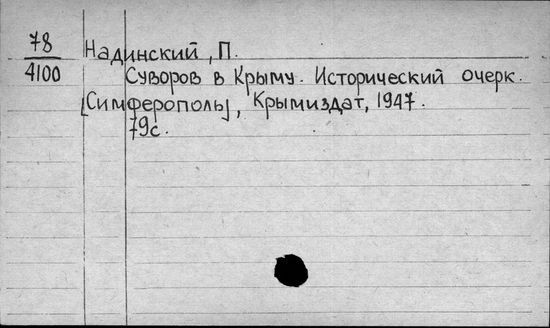 78 Надинский, П.
4100 Суворов в Крыму. Исторический очерк.
[Симферополь], Крымиздат, 1947.
79с.